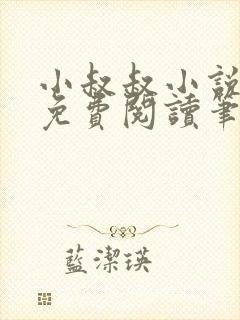 小叔叔小說
免費閱讀筆
藍潔瑛